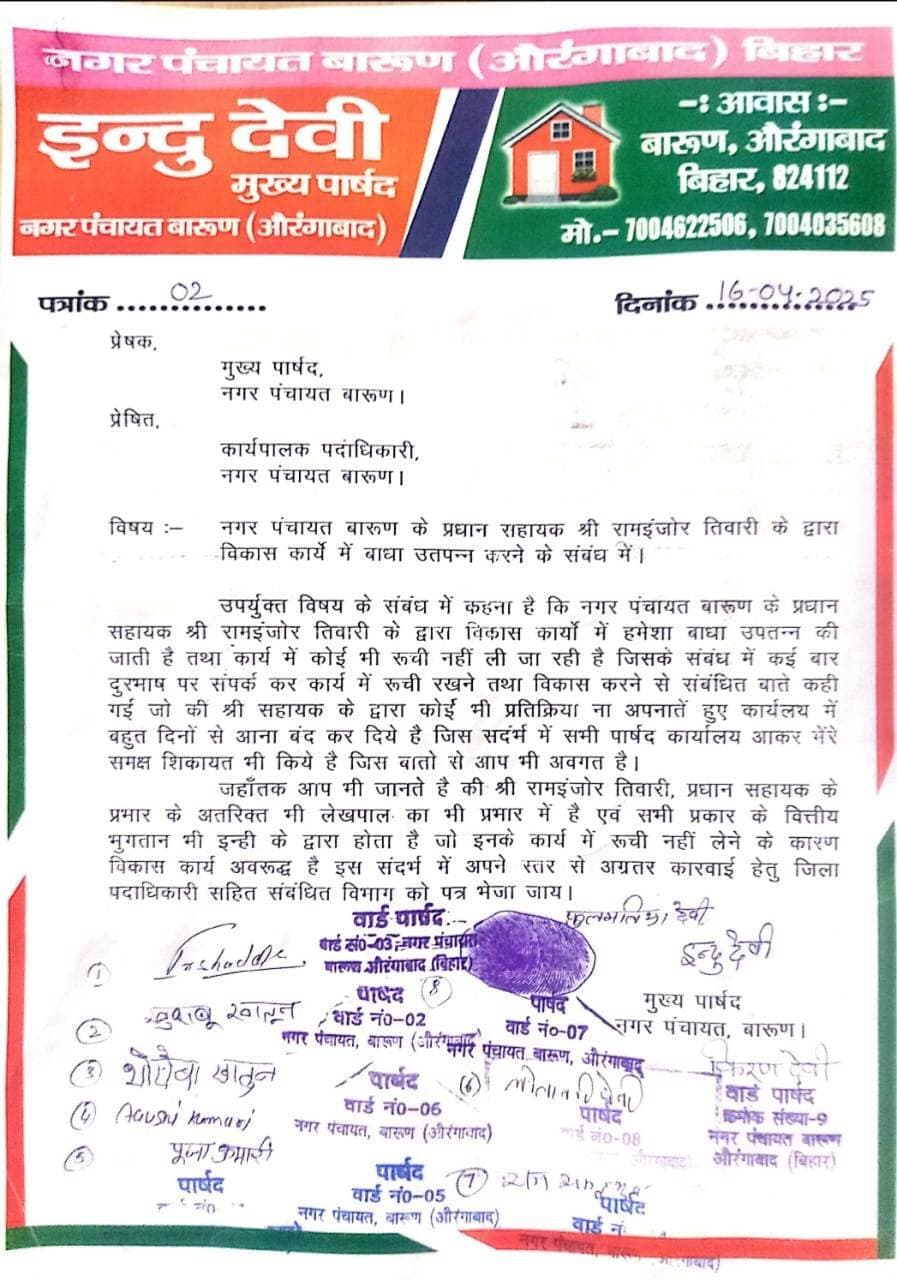 नगर पंचायत बारूण (औरंगाबाद) बिहार
इन्दु देवी
मुख्य पार्षद
नगर पंचायत बारूण (औरंगाबाद)
-: आवास :-
बारूण, औरंगाबाद
बिहार, 824112
मो.- 7004622506, 7004035608
पत्रांक ..02............
दिनांक ..16-04-2025
प्रेषक,
मुख्य पार्षद,
नगर पंचायत बारूण।
प्रेषित,
कार्यपालक पदाधिकारी,
नगर पंचायत बारूण।
विषय :- नगर पंचायत बारूण के प्रधान सहायक श्री रामइंजोर तिवारी के द्वारा
विकास कार्ये में बाधा उतपन्न करने के संबंध में।
उपर्युक्त विषय के संबंध में कहना है कि नगर पंचायत बारूण के प्रधान
सहायक श्री रामइंजोर तिवारी के द्वारा विकास कार्यो में हमेशा बाधा उपतन्न की
जाती है तथा कार्य में कोई भी रूची नहीं ली जा रही है जिसके संबंध में कई बार
दुरभाष पर संपर्क कर कार्य में रूची रखने तथा विकास करने से संबंधित बाते कही
गई जो की श्री सहायक के द्वारा कोई भी प्रतिक्रिया ना अपनातें हुए कार्यलय में
बहुत दिनों से आना बंद कर दिये है जिस सदंर्भ में सभी पार्षद कार्यालय आकर मेंरे
समक्ष शिकायत भी किये है जिस बातो से आप भी अवगत है।
जहाँतक आप भी जानते है की श्री रामइंजोर तिवारी, प्रधान सहायक के
प्रभार के अतरिक्त भी लेखपाल का भी प्रभार में है एवं सभी प्रकार के वित्तीय
भुगतान भी इन्ही के द्वारा होता है जो इनके कार्य में रूची नहीं लेने के कारण
विकास कार्य अवरूद्ध है इस संदर्भ में अपने स्तर से अग्रतर कारवाई हेतु जिला
पदाधिकारी सहित संबंधित विभाग को पत्र भेजा जाय।
वार्ड पार्षद
वार्ड सं0-03, नगर पंचायत
बारूण औरंगाबाद (बिहार)
देवी
इन्दु देवी
मुख्य पार्षद
नगर पंचायत, बारूण।
1
2 खुशबू खातुन
पार्षद
वार्ड नं0-02
नगर पंचायत, बारूण (औरंगाबाद)
8
पार्षद
वार्ड नं0-07
नगर पंचायत बारूण, औरंगाबाद
3 खातुन
4 Kumari
पार्षद
वार्ड नं0-06
नगर पंचायत, बारूण (औरंगाबाद)
6 देवी
पार्षद
वार्ड नं0-08
किरण देवी
वार्ड पार्षद
क्रमांक संख्या-9
नगर पंचायत बारूण
औरंगाबाद (बिहार)
5 पूजा कुमारी
पार्षद
पार्षद
वार्ड नं0-05
नगर पंचायत, बारूण (औरंगाबाद)
7
पार्षद
वार्ड नं
नगर पंचायत, बारूण (औरंगाबाद)